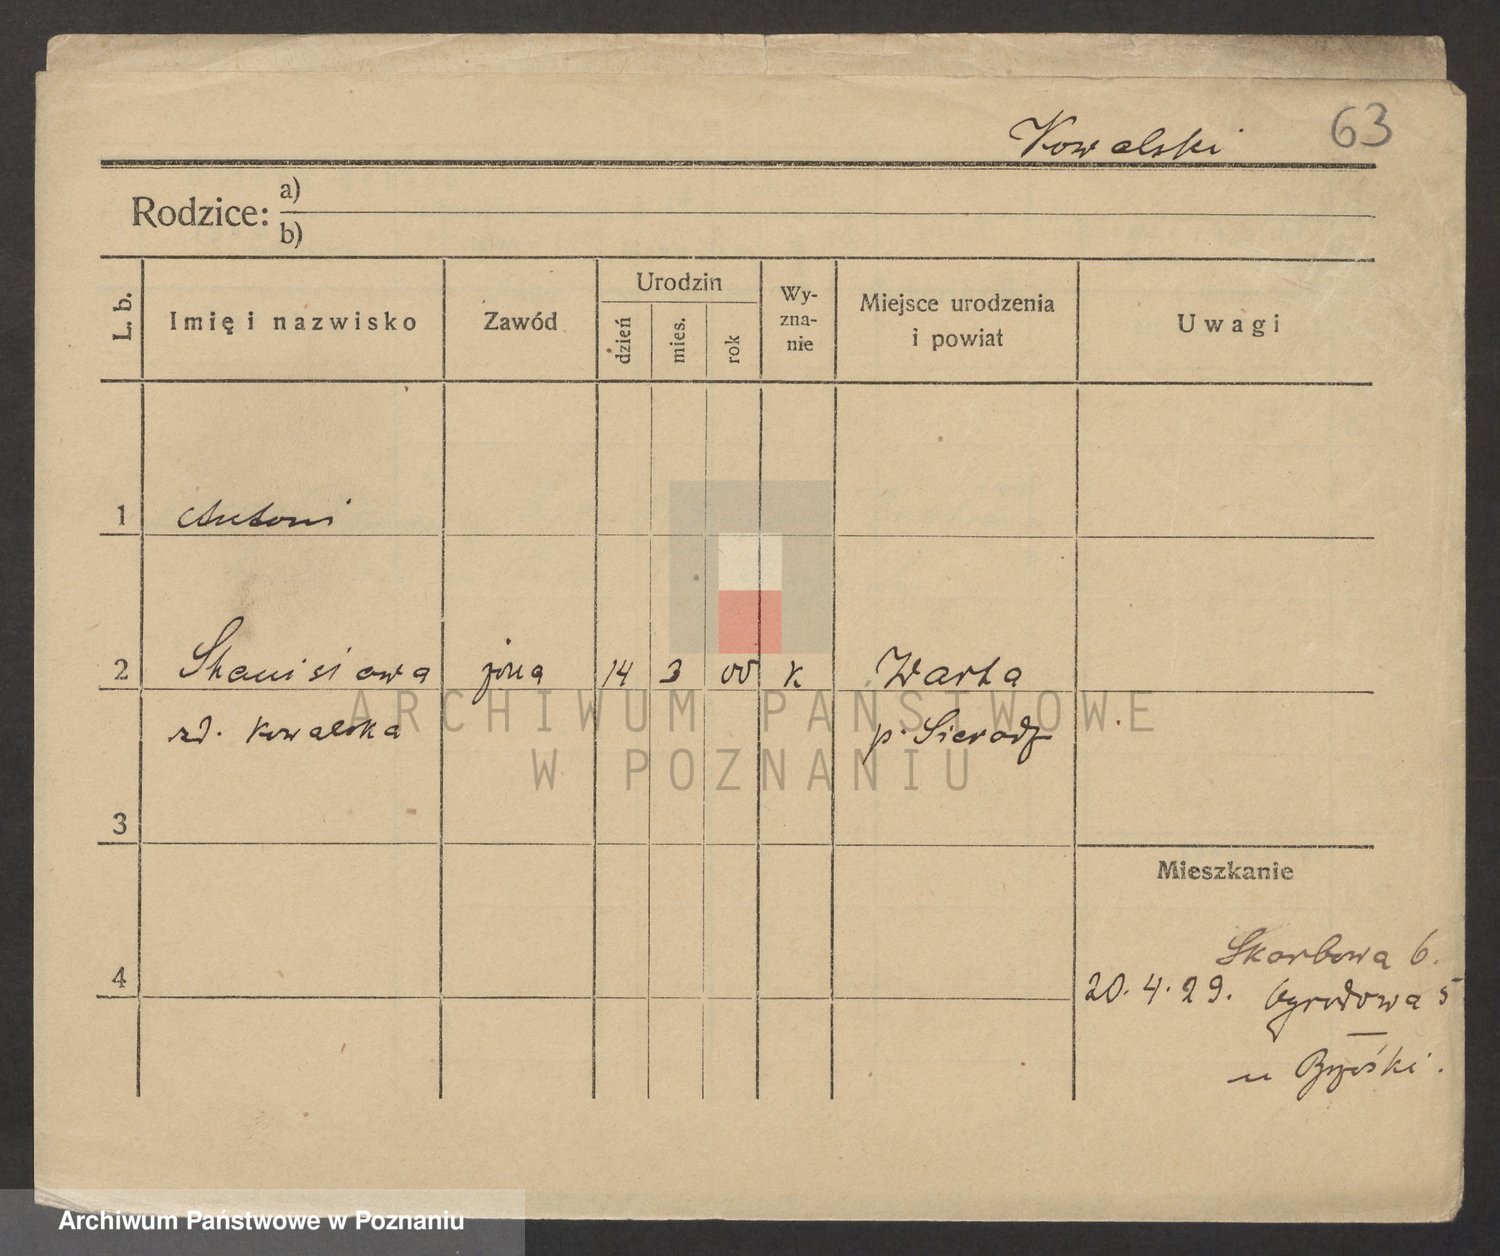 Kowalski 63
Rodzice: a)
b)
L. b.
Imię i nazwisko
Zawód
Urodzin
dzień
mies.
rok
Wy-
zna-
nie
Miejsce urodzenia
i powiat
Uwagi
1 Antoni
2 Stanisława żona 14 3 00 k Warta
rd. Kowalska p. Sieradz
3
4
Mieszkanie
Skarbowa 6.
20.4.29. Ogrodowa 5
u
ARCHIWUM PAŃSTWOWE
W POZNANIU
Archiwum Państwowe w Poznaniu